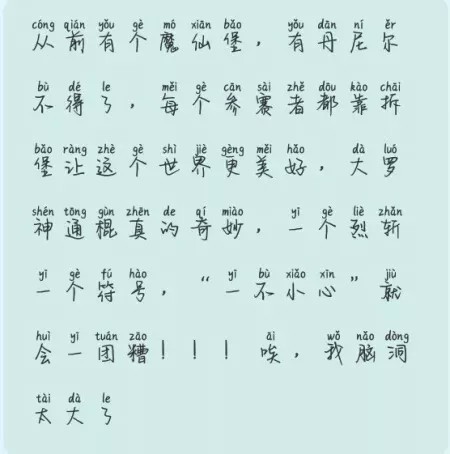 cóng qián yǒu gè mó xiān bǎo yǒu dān ní ěr
从前有个魔仙堡，有丹尼尔
bù dé le měi gè cān sài zhě dōu kào chāi
不得了，每个参赛者都靠拆
bǎo ràng zhè gè shì jiè gèng měi hǎo dà luó
堡让这个世界更美好，大罗
shén tōng gùn zhēn de qí miào yī gè liè zhǎn
神通棍真的奇妙，一个烈斩
yī gè fú hào yī bù xiǎo xīn jiù
一个符号，“一不小心”就
huì yī tuán zāo āi wǒ nǎo dòng
会一团糟！！！唉，我脑洞
tài dà le
太大了